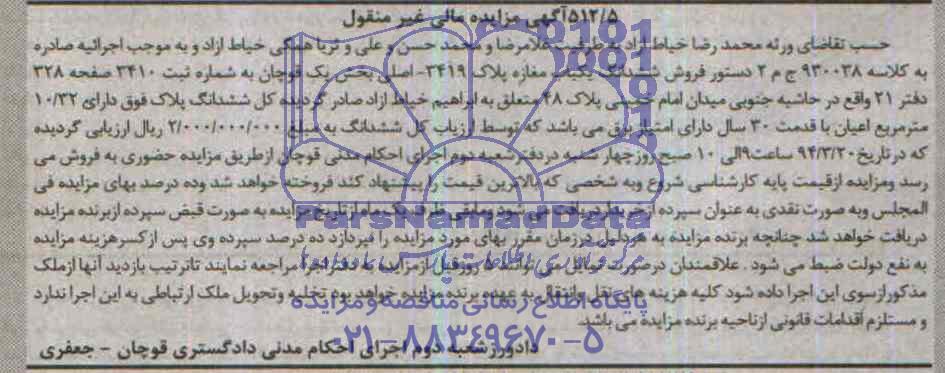 ۵۱۲/۵آگهی مزایده مالی غیر منقول
حسب تقاضای ورثه محمد رضا خیاط ازاد به طرفیت غلامرضا و محمد حسن و علی و ثریا همگی خیاط ازاد و به موجب اجرائیه صادره
به کلاسه ۹۳۰۰۳۸ ج م ۲ دستور فروش ششدانگ یکباب مغازه پلاک ۳۴۱۹- اصلی بخش یک قوچان به شماره ثبت ۳۴۱۰ صفحه ۳۲۸
دفتر ۲۱ واقع در حاشیه جنوبی میدان امام خمینی پلاک ۴۸ متعلق به ابراهیم خیاط ازاد صادر گردیده کل ششدانگ پلاک فوق دارای ۱۰/۳۲
مترمربع اعیان با قدمت ۳۰ سال دارای امتیاز برق می باشد که توسط ارزیاب کل ششدانگ به مبلغ ۲/۰۰۰/۰۰۰/۰۰۰ ریال ارزیابی گردیده
که در تاریخ ۹۴/۳/۲۰ ساعت۹الی ۱۰ صبح روزچهار شنبه دردفتر شعبه دوم اجرای احکام مدنی قوچان ازطریق مزایده حضوری به فروش می
رسد ومزایده ازقیمت پایه کارشناسی شروع وبه شخصی که بالاترین قیمت را پیشنهاد کند فروخته خواهد شد وده درصد بهای مزایده فی
المجلس وبه صورت نقدی به عنوان سپرده از خریدار دریافت می شود ومابقی ظرف یک ماه از تاریخ مزایده به صورت قبض سپرده ازبرنده مزایده
دریافت خواهد شد چنانچه برنده مزایده به هر دلیل درزمان مقرر بهای مورد مزایده را نپردازد ده درصد سپرده وی پس ازکسرهزینه مزایده
به نفع دولت ضبط می شود . علاقمندان درصورت تمایل می توانند ۵ روزقبل ازمزایده به دفتر اجرا مراجعه نمایند تاترتیب بازدید آنها ازملک
مذکورازسوی این اجرا داده شود کلیه هزینه های نقل وانتقال به عهده برنده مزایده خواهد بود تخلیه وتحویل ملک ارتباطی به این اجرا ندارد
و مستلزم اقدامات قانونی ازناحیه برنده مزایده می باشد.
دادورز شعبه دوم اجرای احکام مدنی دادگستری قوچان - جعفری
ParsNamadData
پایگاه اطلاع رسانی مناقصه و مزایده
۰۲۱-۸۸۳۴۹۶۷۰-۵